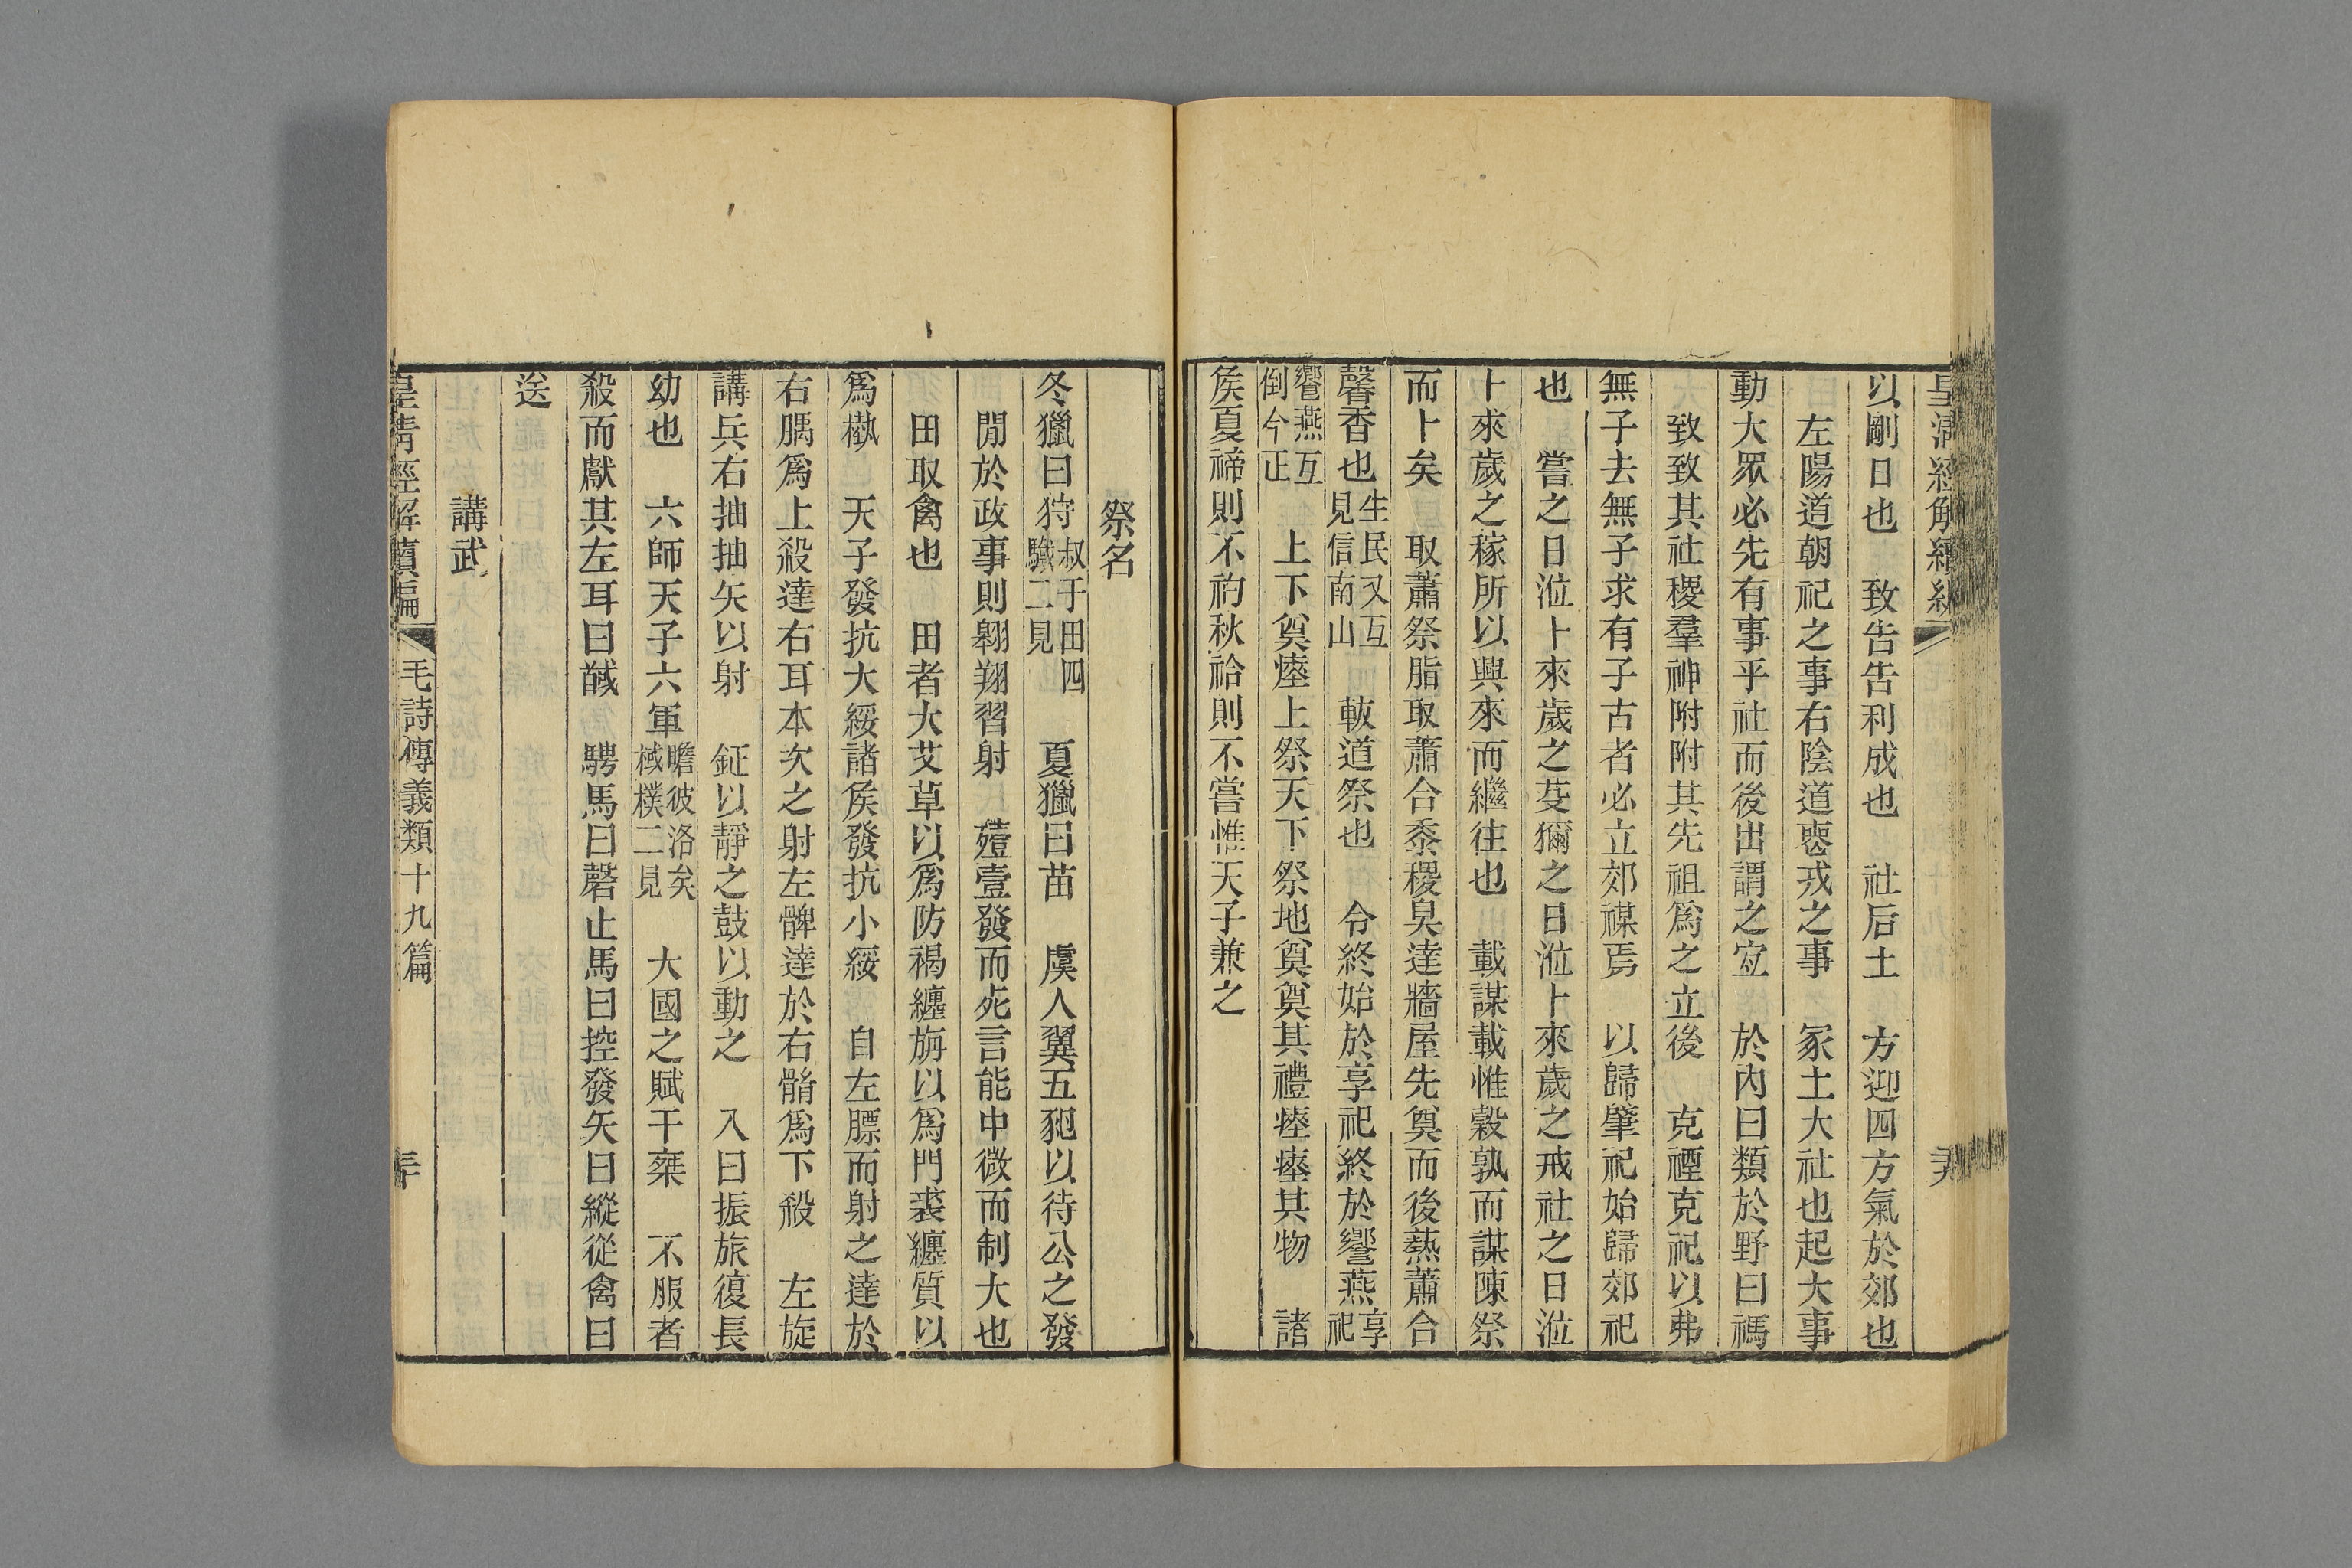 皇清經解續編
以剛日也　致告告利成也　社后土　方迎四方氣於郊也
左陽道朝祀之事右陰道喪戎之事　冢土大社也起大事
動大眾必先有事乎社而後出謂之宜　於內曰類於野曰禡
致致其社稷羣神附附其先祖爲之立後　克禋克祀以弗
無子去無子求有子古者必立郊禖焉　以歸肇祀始歸郊祀
也　嘗之日涖卜來歲之芟獮之日涖卜來歲之戒社之日涖
卜來歲之稼所以興來而繼往也　載謀載惟穀孰而謀陳祭
而卜矣　取蕭祭脂取蕭合黍稷臭達牆屋先奠而後爇蕭合
馨香也生民又互見信南山　軷道祭也　令終始於享祀終於饗燕享祀
饗燕互倒今正　上下奠瘞上祭天下祭地奠奠其禮瘞瘞其物　諸
矦夏禘則不礿秋祫則不嘗惟天子兼之
祭名
冬獵曰狩叔于田四驖二見　夏獵曰苗　虞人翼五豝以待公之發
閒於政事則翱翔習射　殪壹發而死言能中微而制大也
田取禽也　田者大艾草以爲防褐纏旃以爲門裘纏質以
爲槸　天子發抗大綏諸矦發抗小綏　自左膘而射之達於
右腢爲上殺達右耳本次之射左髀達於右䯚爲下殺　左旋
講兵右抽抽矢以射　鉦以靜之鼓以動之　入曰振旅復長
幼也　六師天子六軍瞻彼洛矣棫樸二見　大國之賦千乘　不服者
殺而獻其左耳曰馘　騁馬曰磬止馬曰控發矢曰縱從禽曰
送
講武
皇清經解續編　毛詩傳義類十九篇　三十